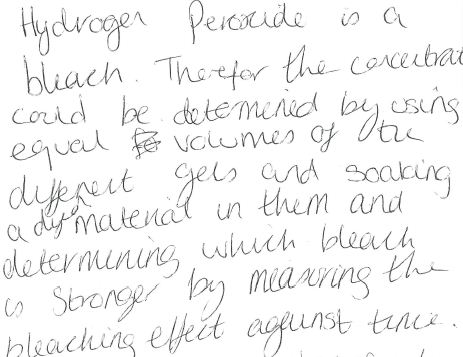 Hydrogen Peroxide is a
bleach. Therefor the concentrat
could be determined by using
equal volumes of the
different gels and soaking
a dyed material in them and
determining which bleach
is stronger by measuring the
bleaching effect against time.